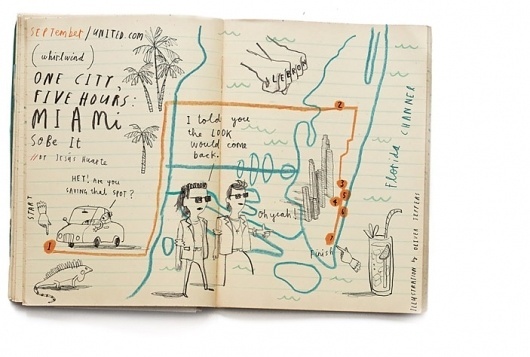 SEPTEMBER/UNITED.COM
(whirlwind)
ONE CITY,
FIVE HOURS:
MIAMI
SOBE IT
// BY
HEY! Are you
SAVING that SPOT?
START
1
I told you
the LOOK
would come
back.
Oh yeah!
2
3
4
7
Finish
Florida CHANNEL
ILLUSTRATION by OLIVER JEFFERS